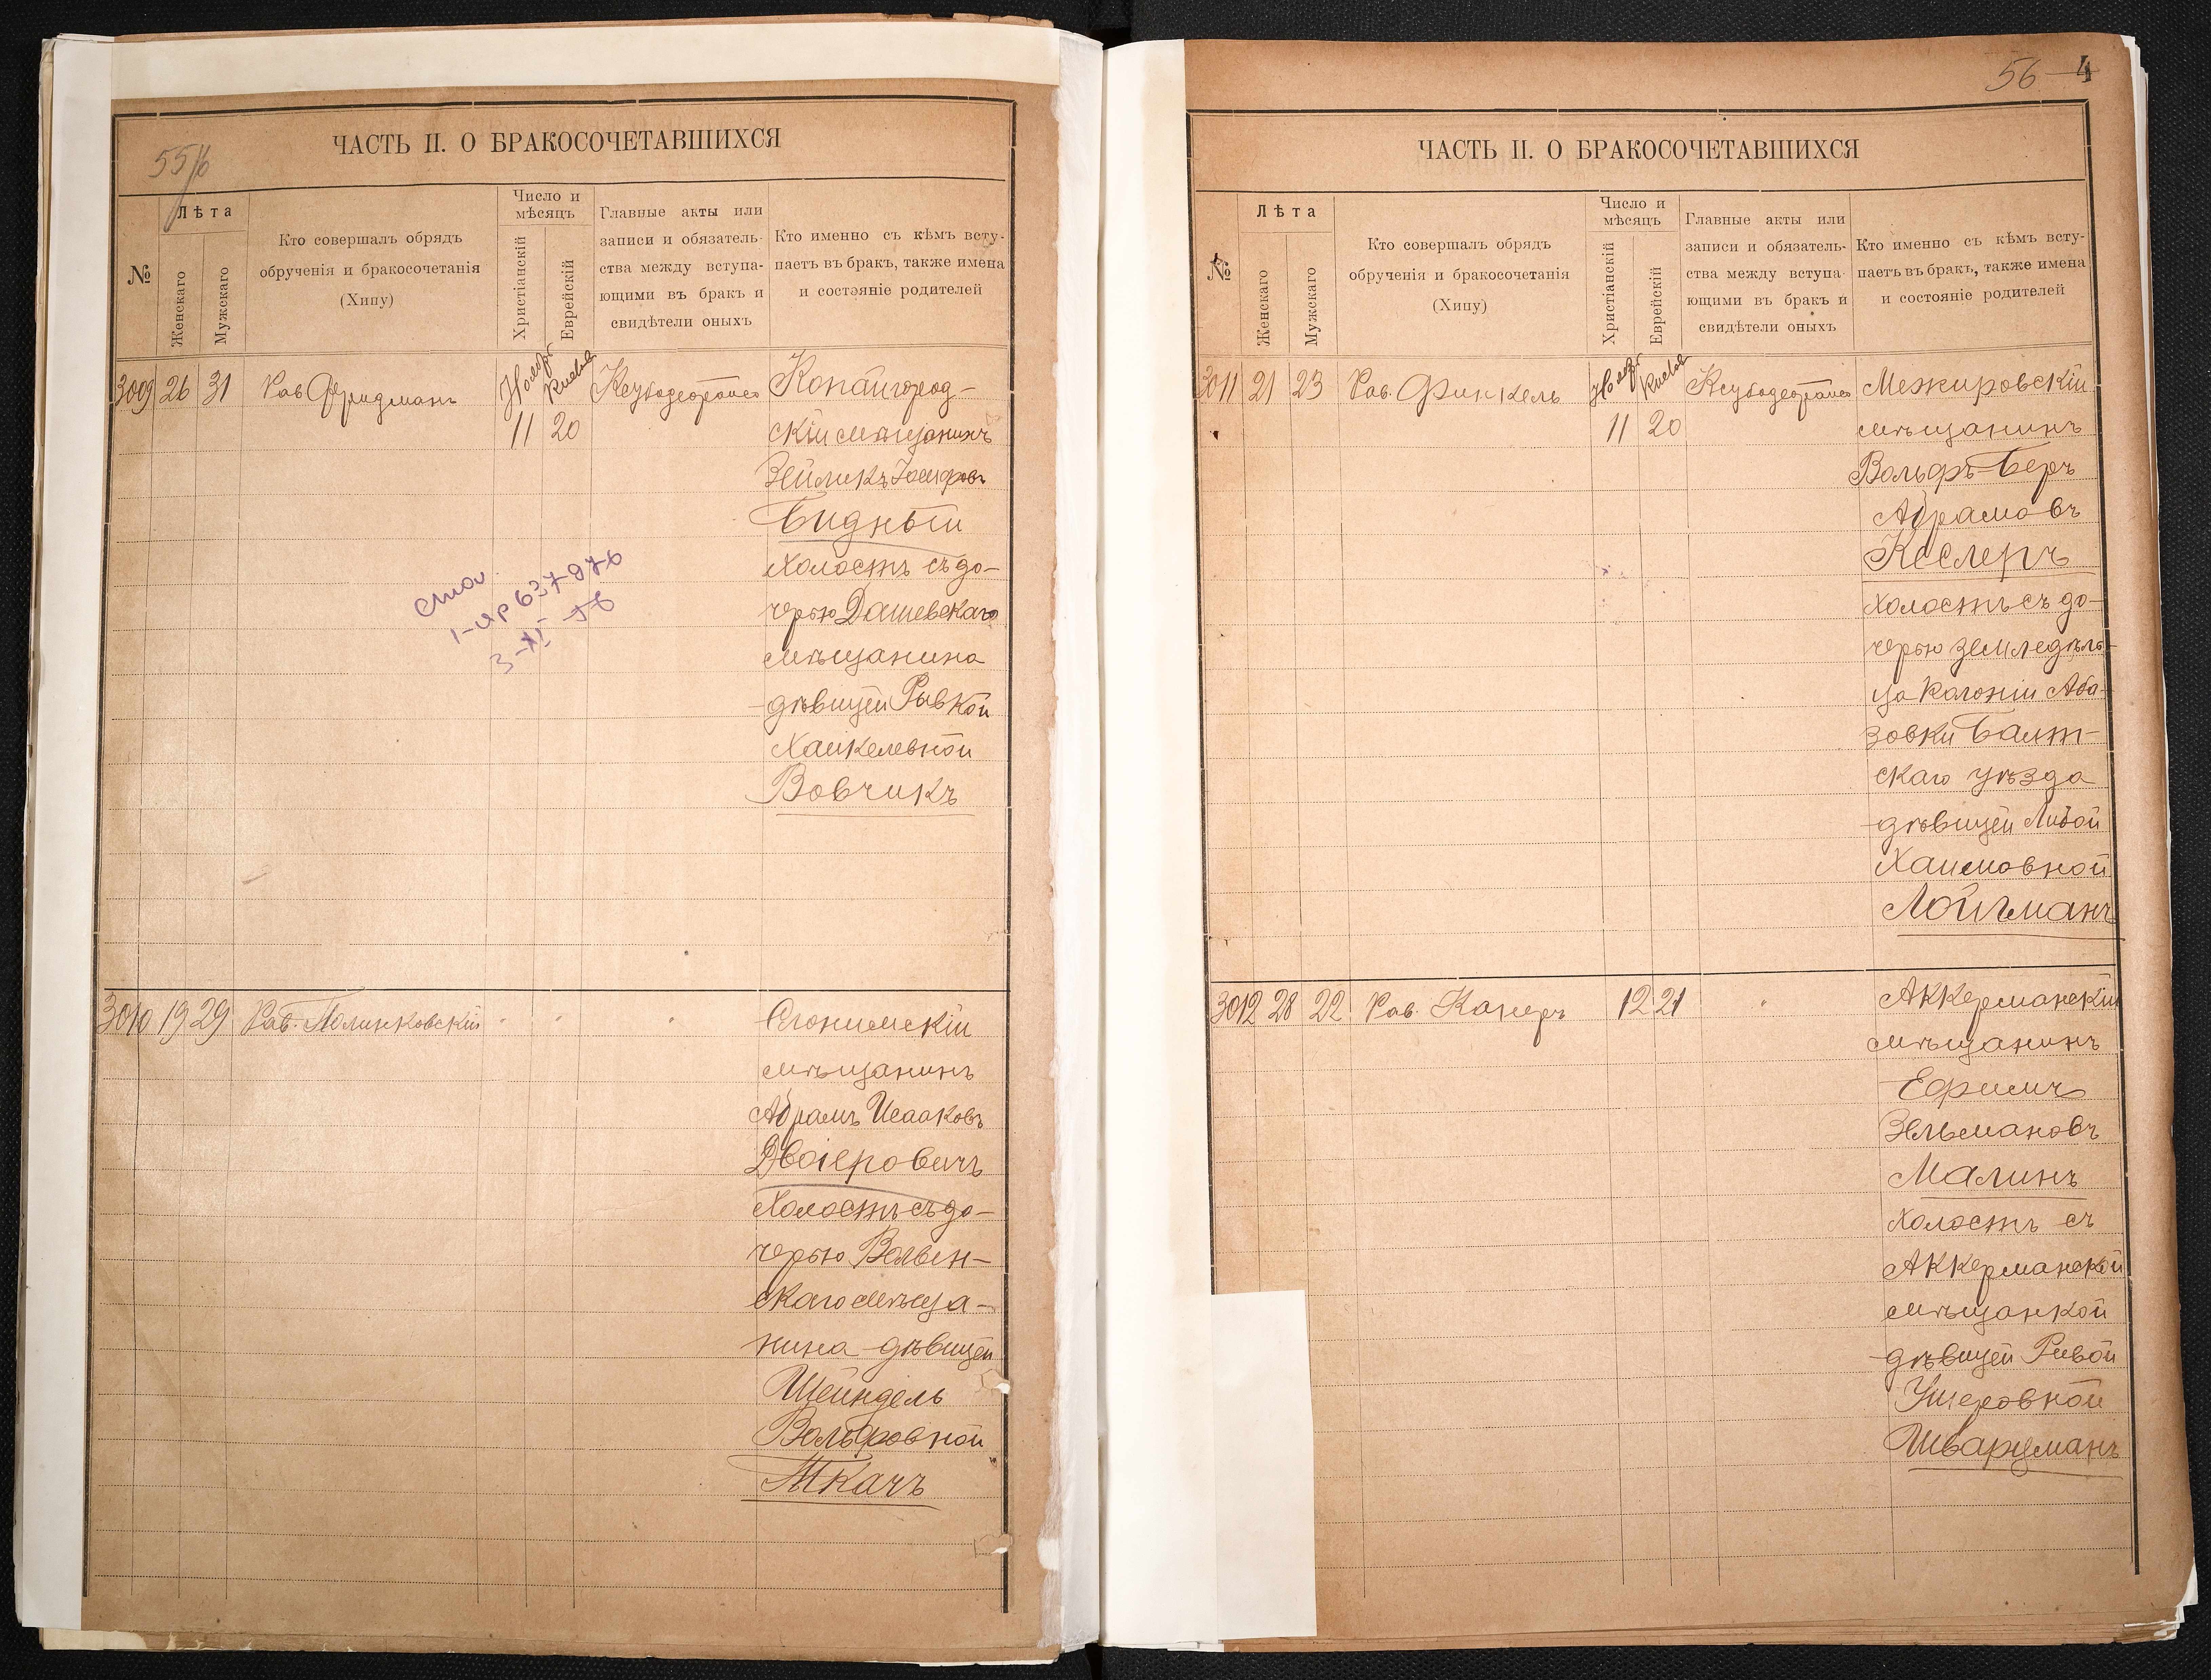 55/6
ЧАСТЬ II. О БРАКОСОЧЕТАВШИХСЯ
№
Лѣта
Женскаго
Мужскаго
Кто совершалъ обрядъ
обрученія и бракосочетанія
(Хипу)
Число и
мѣсяцъ
Христіанскій
Еврейскій
Главные акты или
записи и обязатель-
ства между вступа-
ющими въ бракъ и
свидѣтели оныхъ
Кто именно съ кѣмъ всту-
паетъ въ бракъ, также имена
и состояніе родителей
3009 26 31 Рав Фридманъ Нояб. Кислев
11 20
Копайгород-
скій мѣщанинъ
Зейликъ Іосифовъ
Бидный
холостъ съ до-
черью Дашевскаго
мѣщанина
дѣвицей Рывкой
Хаикелевной
Вовчикъ
3-XI-
3010 19 29 Рав. Полинковскій
Слонимскій
мѣщанинъ
Абрамъ Исааковъ
Двоіеровичъ
холостъ съ до-
черью
скаго мѣща-
нина дѣвицей
Шейндель
Вольфовной
Ткачъ
56 4
ЧАСТЬ II. О БРАКОСОЧЕТАВШИХСЯ
№
Лѣта
Женскаго
Мужскаго
Кто совершалъ обрядъ
обрученія и бракосочетанія
(Хипу)
Число и
мѣсяцъ
Христіанскій
Еврейскій
Главные акты или
записи и обязатель-
ства между вступа-
ющими въ бракъ и
свидѣтели оныхъ
Кто именно съ кѣмъ всту-
паетъ въ бракъ, также имена
и состояніе родителей
3011 21 23 Рав. Финкель Нояб. Кислев
11 20
Межировскій
мѣщанинъ
Вольфъ-Беръ
Абрамовъ
Кеслеръ
холостъ съ до-
черью земледѣль-
ца колоніи Аба-
зовки Балт-
скаго уѣзда
дѣвицей Либой
Хаимовной
Лойгманъ
3012 28 22 Рав. Канеръ 12 21
Аккерманскій
мѣщанинъ
Ефимъ
Зельмановъ
Малинъ
холостъ съ
Аккерманской
мѣщанкой
дѣвицей Ривой
Ушеровной
Шварцманъ